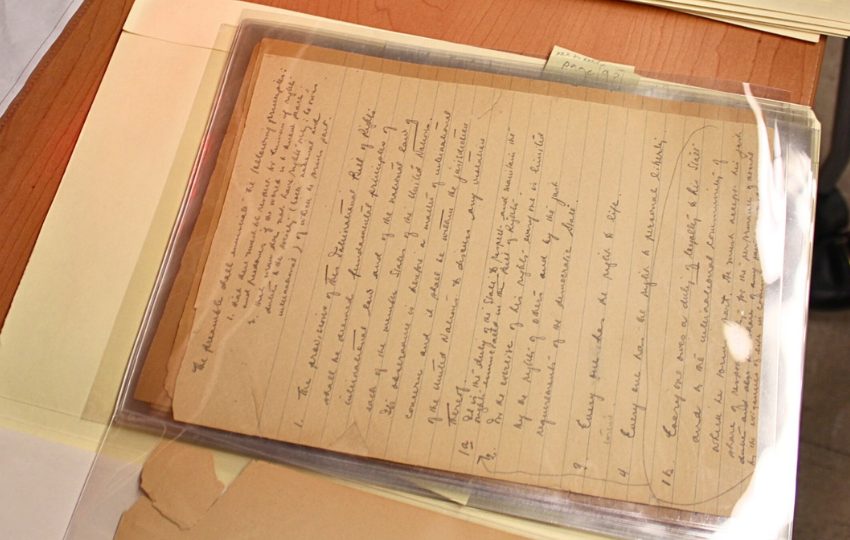 The preamble shall enunciate the following principles:
1. that there must be respect for human rights
and freedoms if the world is to have peace
2. that man does not have rights only; he owes
duties to the society (both national and
international) of which he forms part.
1. The provisions of this International Bill of Rights
shall be deemed fundamental principles of
international law and of the national law of
each of the member States of the United Nations.
Its observance is therefore a matter of international
concern and it shall be within the jurisdiction
of the United Nations to discuss any violation
thereof.
1a It is the duty of the State to respect and maintain the
rights enunciated in this Bill of Rights.
2. In the exercise of his rights everyone is limited
by the rights of others and by the just
requirements of the democratic State.
3 Every one has the right to life.
4 Every one has the right to personal liberty.
1b Everyone owes a duty of loyalty to his State
and to the international community of
which he forms part. He must accept his just
share of responsibility for the performance of social
duties and